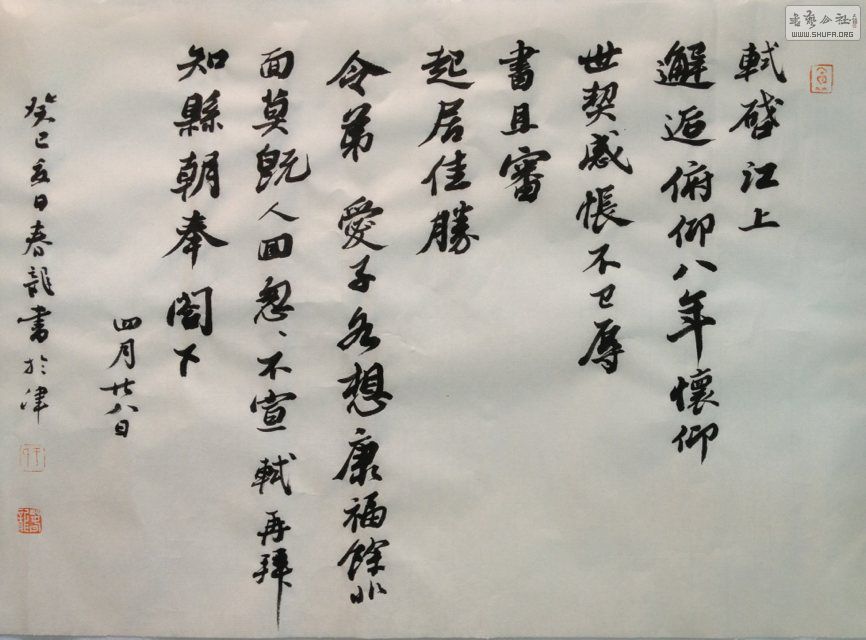 軾啓江上
邂逅俯仰八年懷仰
世契感悵不已辱
書且審
起居佳勝
令弟 愛子各想康福餘非
面莫既人回怱〻不宣 軾再拜
知縣朝奉閣下
四月廿八日
癸巳夏日春龍書於津
WWW.SHUFA.ORG